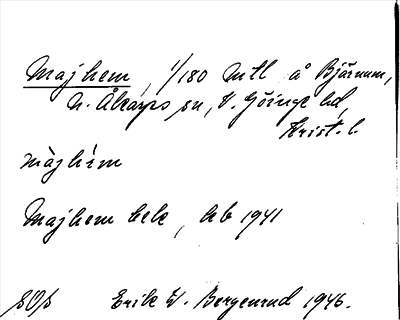 Majhem, 1/180 mtl å Bjärnum,
N. Åkarps sn, V. Göinge hd,
Krist. l.
màjhém
Majhem bele, kb 1941
Erik W. Bergenrud 1946.